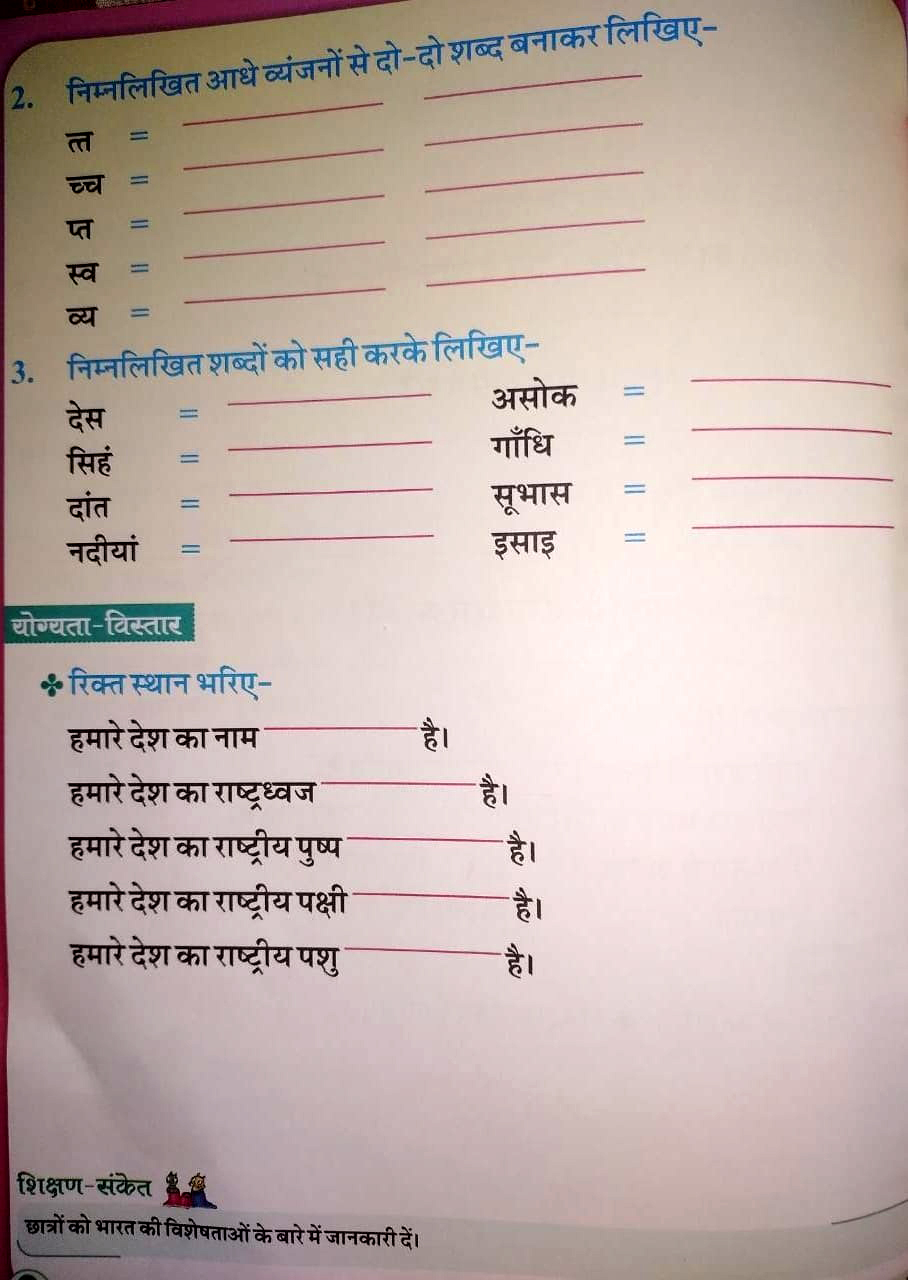 2. निम्नलिखित आधे व्यंजनों से दो-दो शब्द बनाकर लिखिए-
त्त =
च्च =
प्त =
स्व =
व्य =
3. निम्नलिखित शब्दों को सही करके लिखिए-
देस = असोक =
सिहं = गाँधि =
दांत = सूभास =
नदीयां = इसाइ =
योग्यता-विस्तार
रिक्त स्थान भरिए-
हमारे देश का नाम है।
हमारे देश का राष्ट्रध्वज है।
हमारे देश का राष्ट्रीय पुष्प है।
हमारे देश का राष्ट्रीय पक्षी है।
हमारे देश का राष्ट्रीय पशु है।
शिक्षण-संकेत
छात्रों को भारत की विशेषताओं के बारे में जानकारी दें।